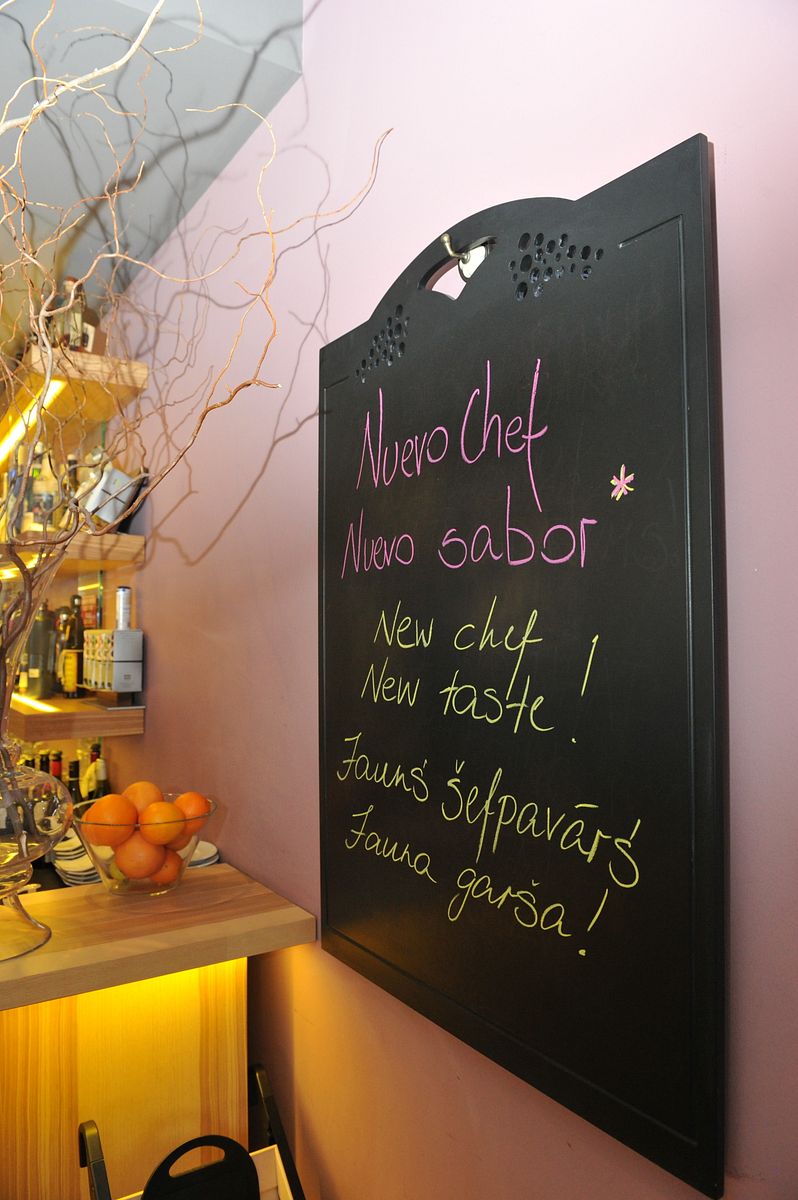 Nuevo Chef
Nuevo sabor *
New chef
New taste!
Jaunś šefpavārś
Jauna garša!